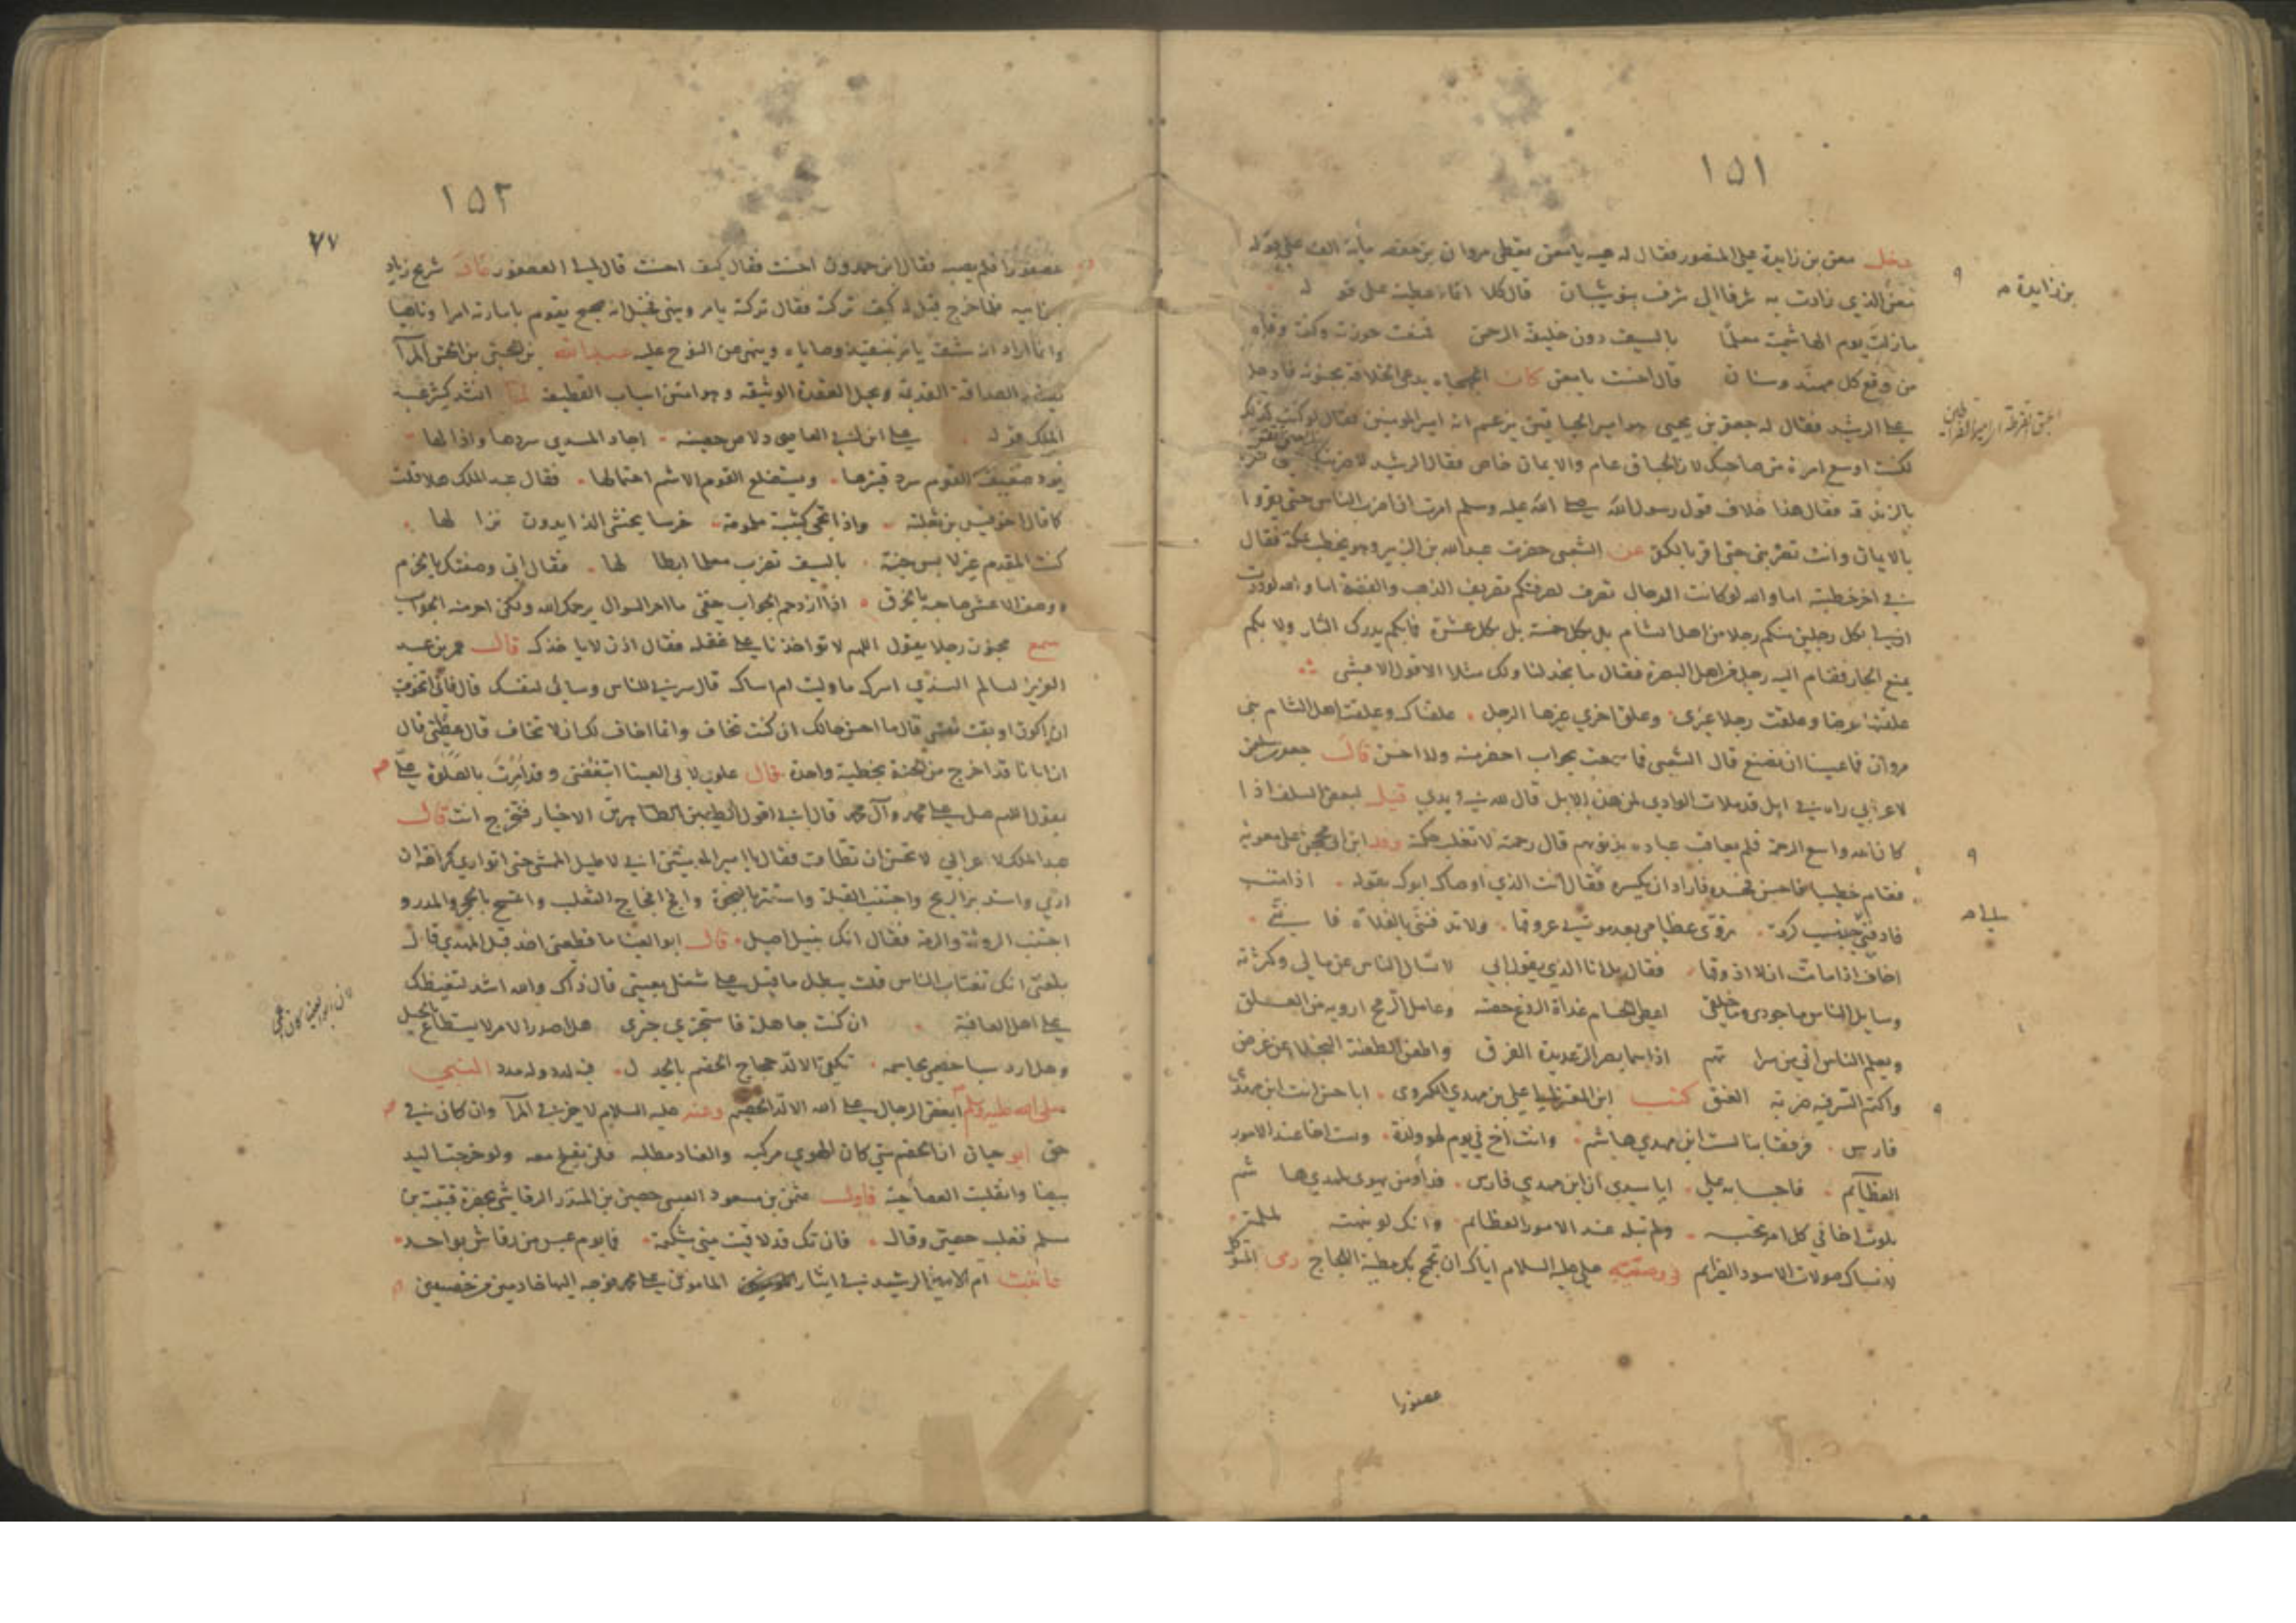 ١٥١
دخل معن بن زايدة على المنصور فقال له هيه يا معن تعطي مروان بن حفصه مأية الف على قوله
معن الذي زادت به شرفا الى شرف بنو شيبان قال كلا انما اعطيته على قوله
ما زلت يوم الهاشمية معلنًا بالسيف دون خليفة الرحمن فمنعت حوزته وكنت وقاه
من وقع كل مهند وسنان قال احسنت يا معن كان يدعى الخلافة بجنونه فادخل
على الرشيد فقال له جعفر بن يحيى هو امير يزعم انه امير المومنين فقال لو كنت كذلك
لكنت اوسع امرة من صاحبك لان عام والايمان خاص فقال الرشيد لاضربنك حتى تقر
بالزندقة فقال هذا خلاف قول رسول الله صلى الله عليه وسلم امرت ان اضرب الناس حتى يقروا
بالايمان وانت تضربني حتى اقر بالكفر عن الشعبي حضرت عبدالله بن الزبير وهو يخطب بمكة فقال
في اخر خطبته اما والله لو كانت الرجال تصرف لصرفتكم تصريف الذهب والفضة اما والله لوددت
ان لي بكل رجلين منكم رجلا من اهل الشام بل بكل خمسة بل بكل عشرة فما بكم يدرك الثار ولا بكم
يمنع الجار فقام اليه رجل من اهل البصرة فقال ما نجد لنا ولك مثلا الا قول الاعشى
علقتها عرضا وعلقت رجلا غيري وعلق اخري غيرها الرجل علقناك وعلقت اهل الشام بني
مروان فما عسينا ان نصنع قال الشعبي فما سمعت بجواب احضر منه ولا احسن قال جعفر بن سليمن
لاعرابي راه في ابل قد ملات الوادي لمن هذه الابل قال لله في يدي قيل لبعض السلف اذا
كان الله واسع الرحمة فلم يعاقب عباده بذنوبهم قال رحمته لا تغلب حكمته وفد ابن ابي محجن على معوية
فقام خطيبا فاحسن فحسده فاراد ان يكسره فقال انت الذي اوصاك ابوك بقوله اذا مت
فادفني الى جنب كرمة تروّى عظامي بعد موتي عروقها ولا تدفنني بالفلاة فانني
اخاف اذا ما مت ان لا اذوقها فقال بل انا الذي يقول ابي لا تسال الناس عن مالي وكثرته
وسايل الناس ما جودي وما خلقي اعطي الحسام غداة الروع حصته وعامل الرمح ارويه من العلق
ويعلم الناس اني من سراتهم اذا سما بصر الرعديدة الفرق واطعن الطعنة النجلا عن عرض
واكتم السر فيه ضربة العنق كتب ابن المعتز الى علي بن مهدي الكسروى ابا حسن انت ابن مهدي
فارس فرفقا بنا لست ابن مهدي هاشم وانت اخ في يوم لهو ولذة ولست اخا عند الامور
العظآيم فاجابه علي ايا سيدي ان ابن مهدي فارس فدآء من يهوى لمهدي هاشم
بلوت اخا في كل امر تحبه ولم تبله عند الامور العظائم وانك لو نبهته لملمة
لانساك صولات الاسود الضراغم في وصية علي عليه السلام اياك ان تجمح بك مطية اللجاج رمى المتوكل
عصفورا
بن زايدة
١٥٢
٧٧
عصفورا فلم يصبه فقال ابن حمدون احسنت فقال كيف احسنت قال الى العصفور عاد شريح زياد
بن ابيه فلما خرج قيل له كيف تركته فقال تركته يامر وينهى فخيل انه صحيح يقوم بامارته امرا وناهيا
وانما اراد انه شف يامر بتنفيذ وصاياه وينهى عن النوح عليه عبدالله بن الحسن بن الحسن المرآ
يفسد الصداقة القديمة ويحل العقدة الوثيقة وهو امتن اسباب القطيعة لما انشد كثير عبد
الملك قوله على ابن ابي العاصى دلاص حصينة اجاد المسدي سردها واذالها
يؤود ضعيف القوم سرد قتيرها ويستضلع القوم الاشم احتمالها فقال عبد الملك هلا قلت
كما قال اخو قيس بن ثعلبة واذا تجي كتيبة ملمومة خرسا يخشى الذايدون نزالها
كنت المقدم غير لابس جنة بالسيف تضرب معلما ابطالها فقال اني وصفتك بالحزم
ووصف الاعشى صاحبه بالخرق اذا ازدحم الجواب خفى
سمع مجنون رجلا يقول اللهم لا تواخذنا على غفلة فقال اذن لا ياخذك قال عمر بن عبد
العزيز لسالم السندي اسرك ما وليت ام اساك قال سرني للناس وساني لنفسك قال فاني اتخوف
ان اكون اوبقت نفسي قال ما احسن حالك ان كنت تخاف وانما اخاف لك ان لا تخاف قال عظني قال
ان ابانا قد اخرج من الجنة بخطية واحدة قال علوي لابي العينا اتبغضني وقد امرت بالصلوة علي
بقول اللهم صل على محمد وآل محمد قال اني اقول الطيبين الطاهرين الاخيار فتخرج انت قال
عبد الملك لاعرابي لا تحسن ان تطامت فقال يا امير المومنين اني لاطيل المشى حتى اتواري كراهة ان
اري واستدبر الريح واجتنب القبلة واستتر بالشجرة وافج افجاج الثعلب وامتسح بالحجر والمدر و
اجتنب الروثة والرمة فقال انك نبيل اصيل قال ابو العينا ما قطعني احد قبل المهتدي قال
بلغني انك تغتاب الناس قلت يبطل ما قيل على شغلي بعيني قال ذاك والله اشد لتغيظك
على اهل العافية ان كنت جاهلة فاستخبري خبري هل اصدر الامر لا يستطاع
وهل ارد سباحصم بجاسمه تكفي الالد حجاج الخصم بالجدل في لدد وله مدد النبي
صلى الله عليه وسلم ابغض الرجال على الله الالد الخصم وعنه عليه السلام لا خير في المرآ وان كان في
حق ابو حيان ان الخصم متى كان الهوي مركبه والعناد مطلبه فلن تفلح معه ولو خرجت اليد
بيضا وانقلبت العصا حية قاول عثمن بن مسعود العبسي حصين بن المنذر الرقاشي بحضرة قتيبة بن
مسلم فغلب حصين وقال فان تك قد لاقيت مني شكيمة فما يوم عبس من رقاش بواحد
عاتبت ام الامين الرشيد في ايثار المامون على محمد فوجه اليهما خادمين من خصيين
لان ابو العينا كان اعمى